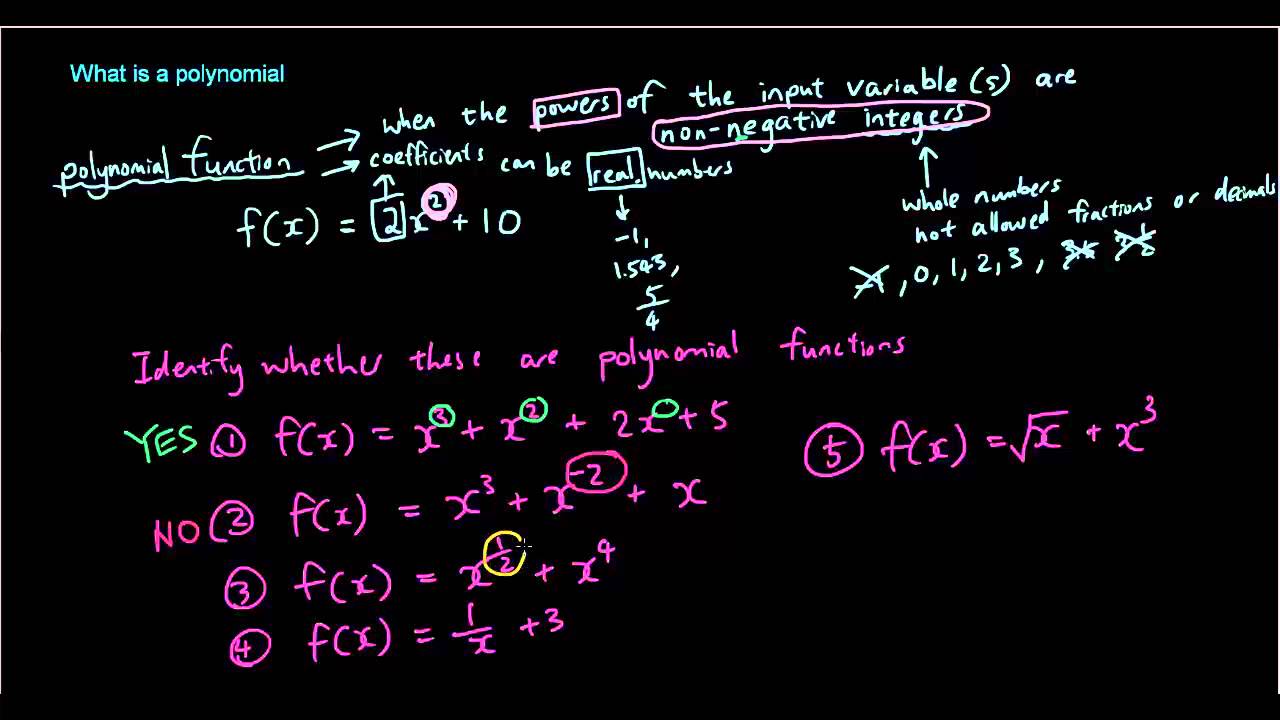 What is a polynomial
polynomial function → when the powers of the input variable(s) are
non-negative integers
→ coefficients can be real numbers
f(x) = 2x² + 10
-1,
1.543,
5/4
whole numbers
not allowed fractions or decimals
-1, 0, 1, 2, 3,
Identify whether these are polynomial functions
YES ① f(x) = x³ + x² + 2x + 5
NO ② f(x) = x³ + x⁻² + x
③ f(x) = x^(1/2) + x⁴
④ f(x) = 1/x + 3
⑤ f(x) = √x + x³